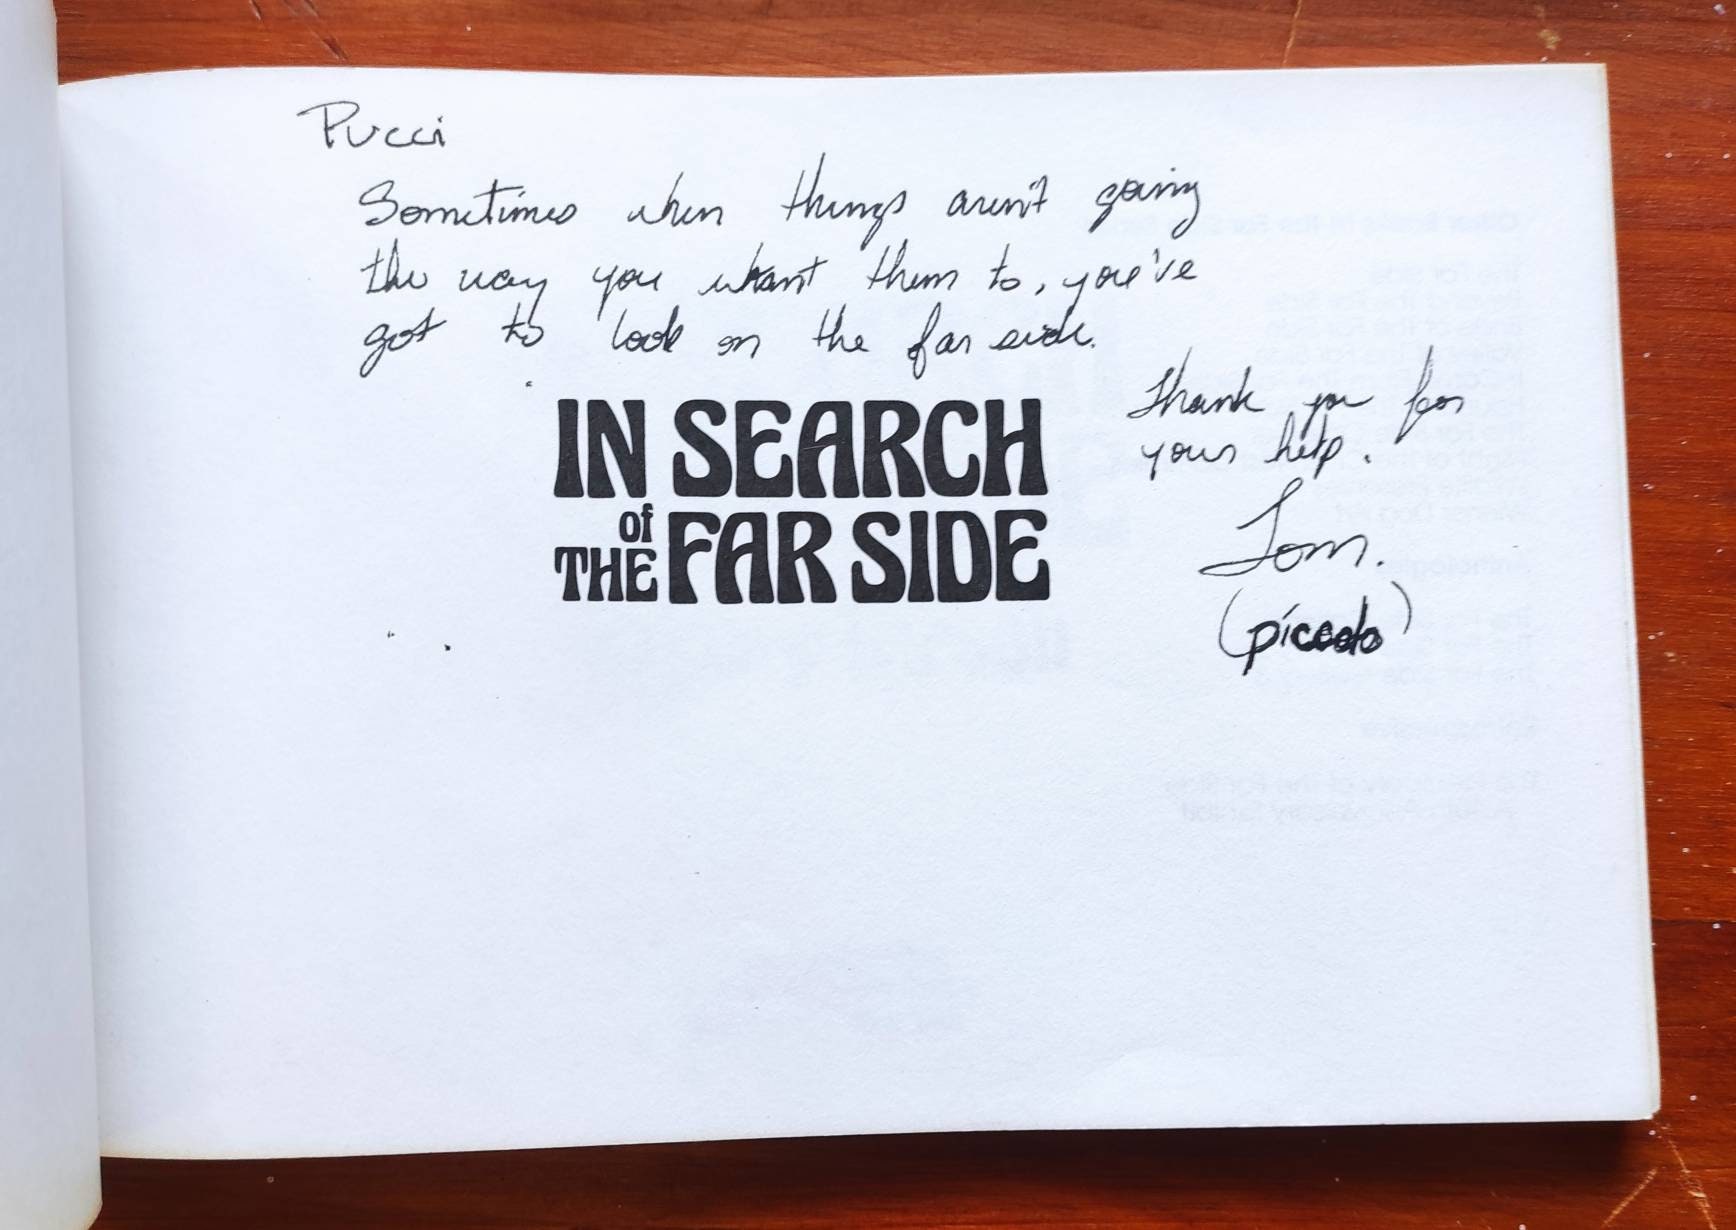 Pucci
Sometimes when things aren't going
the way you want them to, you've
got to look on the far side.
IN SEARCH
of
THE FAR SIDE
Thank you for
your help.
Tom.
(piccolo)